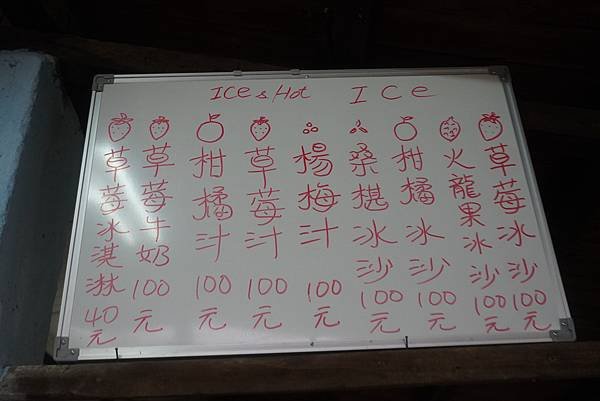 ICe & Hot
ICe
草莓冰沙100元
火龍果冰沙100元
柑橘冰沙100元
桑椹冰沙100元
楊梅汁100元
草莓汁100元
柑橘汁100元
草莓牛奶100
草莓冰淇淋40元